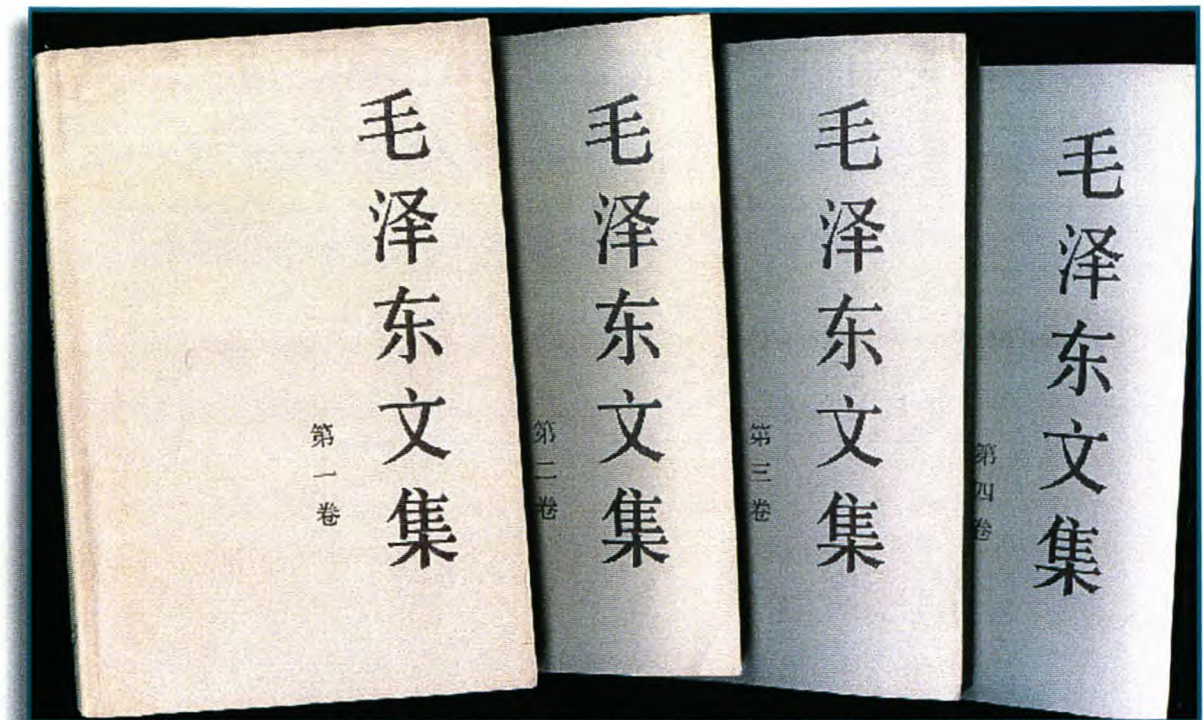 毛泽东文集
第一卷
毛泽东文集
第二卷
毛泽东文集
第三卷
毛泽东文集
第四卷